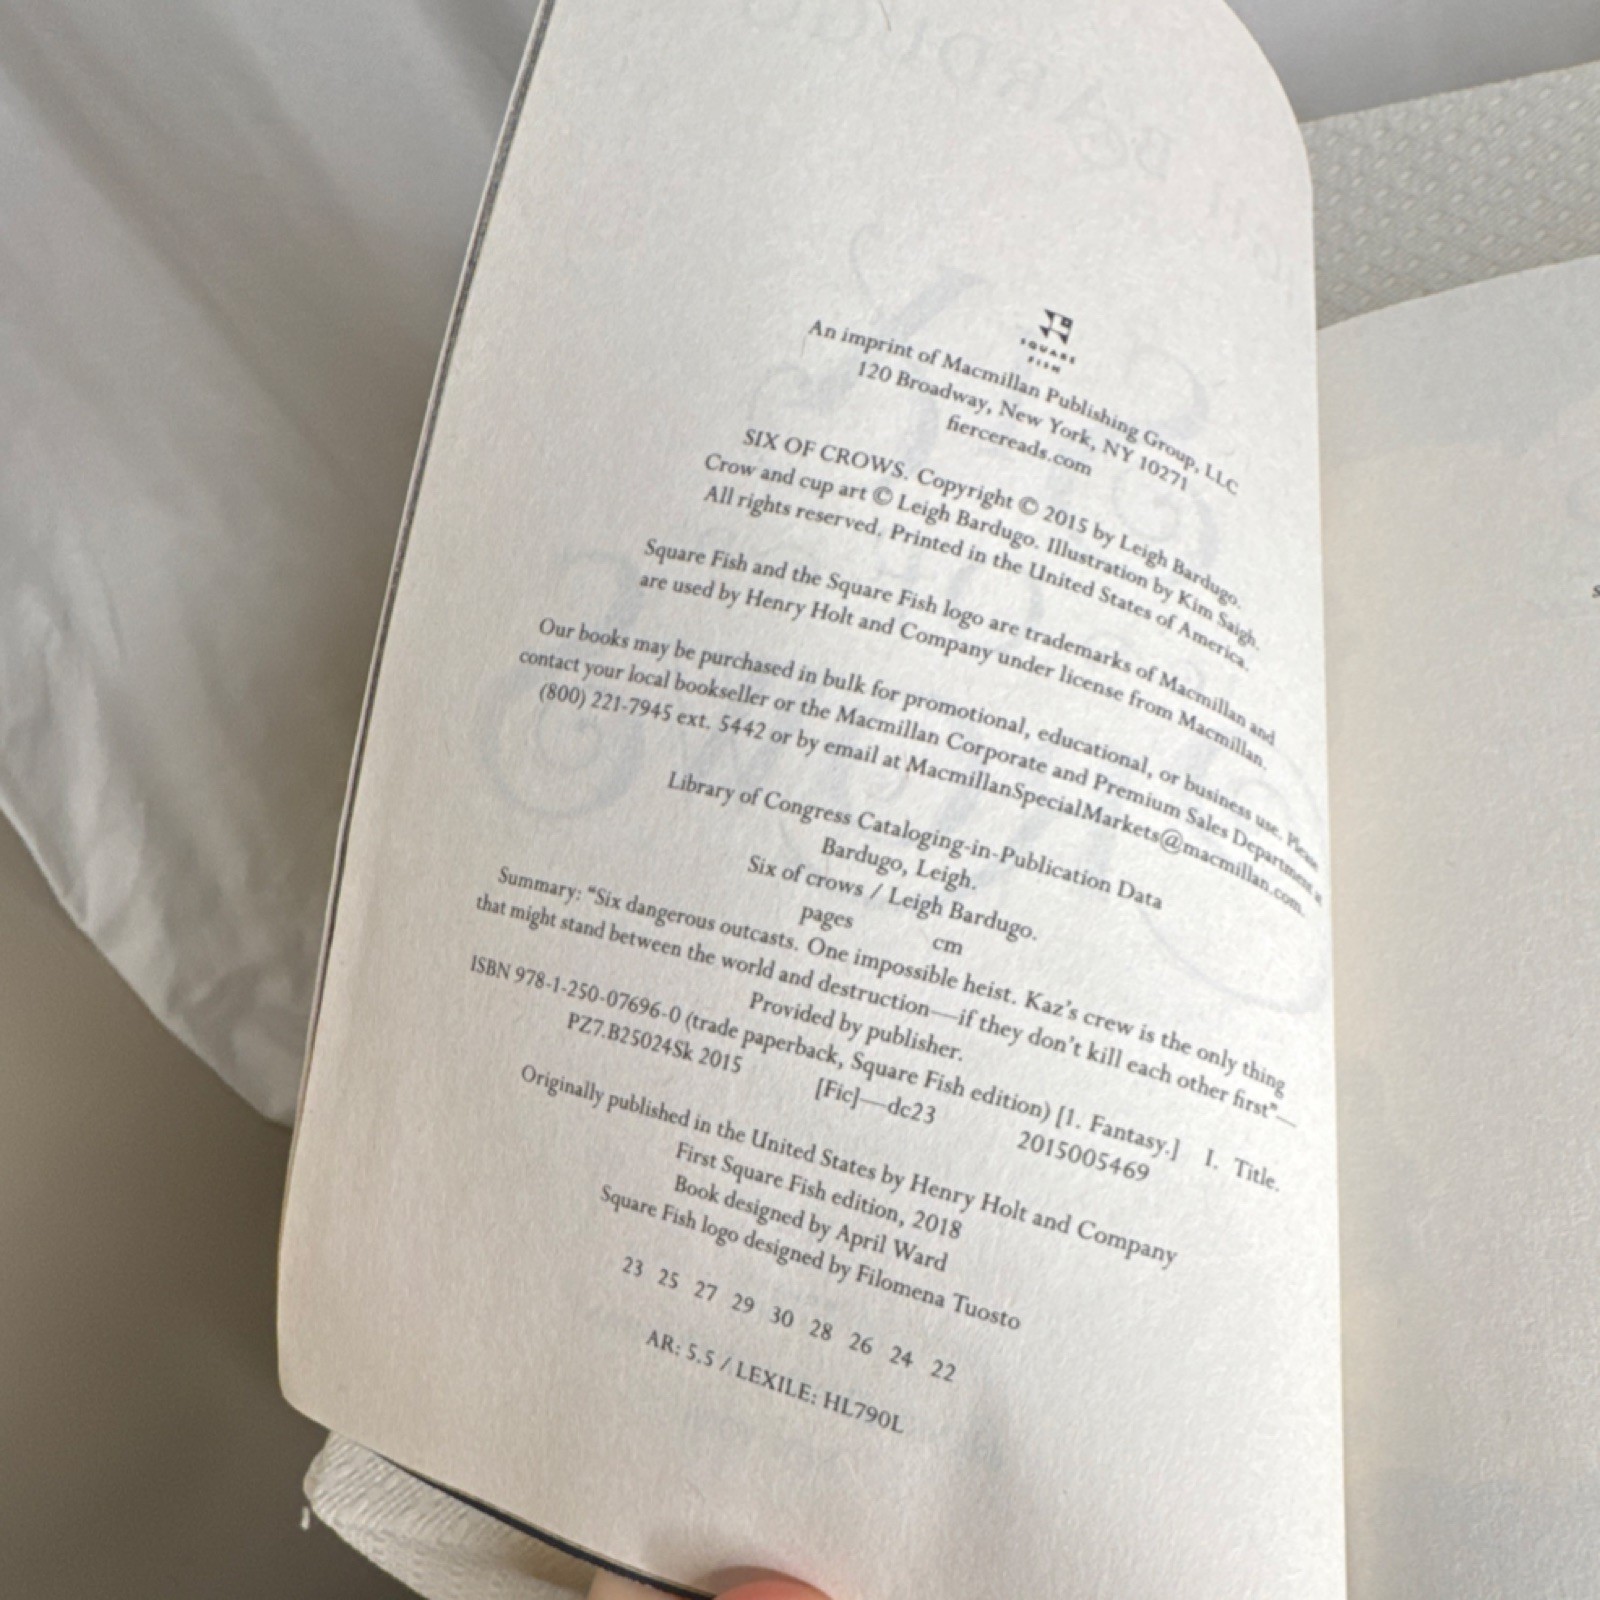 SQUARE
FISH
An imprint of Macmillan Publishing Group, LLC
120 Broadway, New York, NY 10271
fiercereads.com
SIX OF CROWS. Copyright © 2015 by Leigh Bardugo.
Crow and cup art © Leigh Bardugo. Illustration by Kim Saigh.
All rights reserved. Printed in the United States of America.
Square Fish and the Square Fish logo are trademarks of Macmillan and
are used by Henry Holt and Company under license from Macmillan.
Our books may be purchased in bulk for promotional, educational, or business use. Please
contact your local bookseller or the Macmillan Corporate and Premium Sales Department at
(800) 221-7945 ext. 5442 or by email at MacmillanSpecialMarkets@macmillan.com.
Library of Congress Cataloging-in-Publication Data
Bardugo, Leigh.
Six of crows / Leigh Bardugo.
pages cm
Summary: “Six dangerous outcasts. One impossible heist. Kaz’s crew is the only thing
that might stand between the world and destruction—if they don’t kill each other first”—
Provided by publisher.
ISBN 978-1-250-07696-0 (trade paperback, Square Fish edition) [1. Fantasy.] I. Title.
PZ7.B25024Sk 2015 [Fic]—dc23 2015005469
Originally published in the United States by Henry Holt and Company
First Square Fish edition, 2018
Book designed by April Ward
Square Fish logo designed by Filomena Tuosto
23 25 27 29 30 28 26 24 22
AR: 5.5 / LEXILE: HL790L